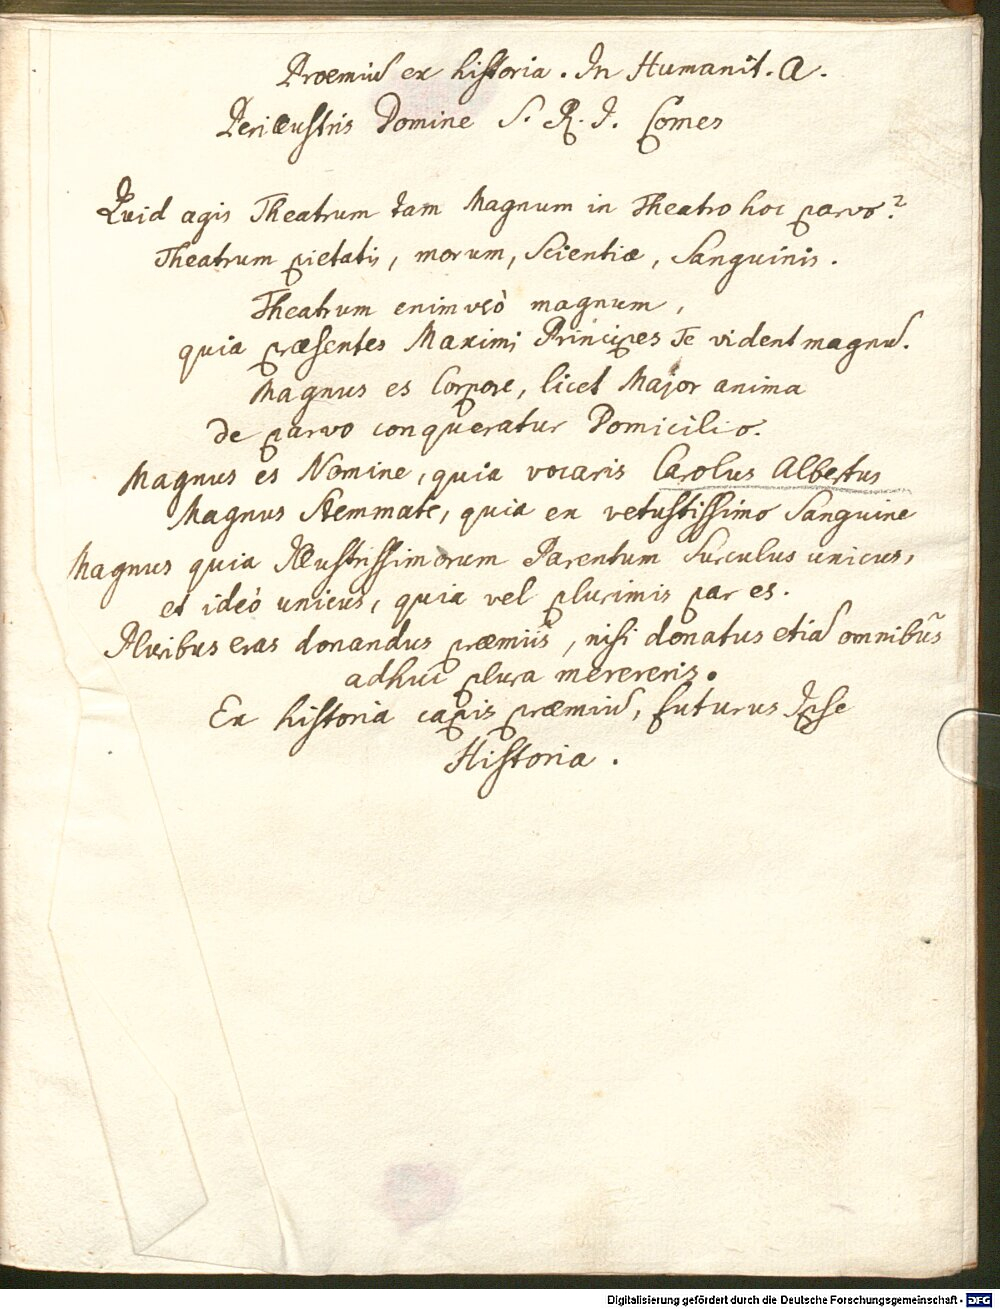 Proemiu᷃ ex historia. In Humanit. A.
Perillustris Domine S. R. I. Comes
Quid agis Theatrum tam Magnum in Theatro hoc parvo?
Theatrum pietatis, morum, Scientiæ, Sanguinis.
Theatrum enimv̄eò magnum,
quia præsentes Maximi Principes Te vident magnu᷃.
Magnus es Corpore, licet Major anima
de parvo conqueratur Domicilio.
Magnus es Nomine, quia vocaris Carolus Albertus
Magnus Stemmate, quia ex vetustissimo Sanguine
Magnus quia Illustrissimorum Parentum Surculus unicus,
et ideò unicus, quia vel plurimis par es.
Pluribus eras donandus præmiis, nisi donatus etia᷃ omnibus̃
adhuc plura merereris.
Ex historia capis præmiu᷃, futurus Ipse
Historia.
Digitalisierung gefördert durch die Deutsche Forschungsgemeinschaft - DFG